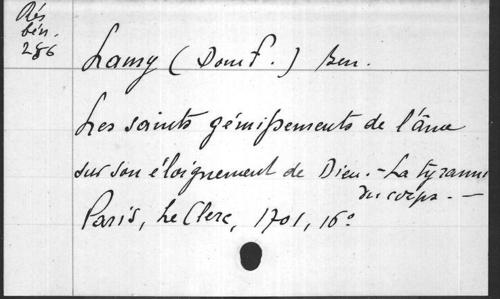 Rés
bén.
286
Lamy (Dom F.) Ben.
Les saints gémissements de l'âme
sur son éloignement de Dieu. - La tyrannie
du corps. -
Paris, Le Clerc, 1701, 16°